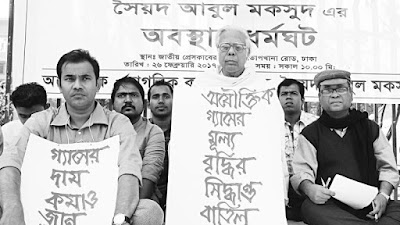 সৈয়দ আবুল মকসুদ এর
অবস্থান ধর্মঘট
স্থান: জাতীয় প্রেসক্লাবের
রোড, ঢাকা
তারিখ: ২৬ ফেব্রুয়ারি ২০১৭
সময়: সকাল ১০.০০ মি:
নাগরিক
আবুল মকসুদ
গ্যাসের
দাম
কমাও
জান
অযৌক্তিক
গ্যাসের
মূল্য
বৃদ্ধির
সিদ্ধান্ত
বাতিল